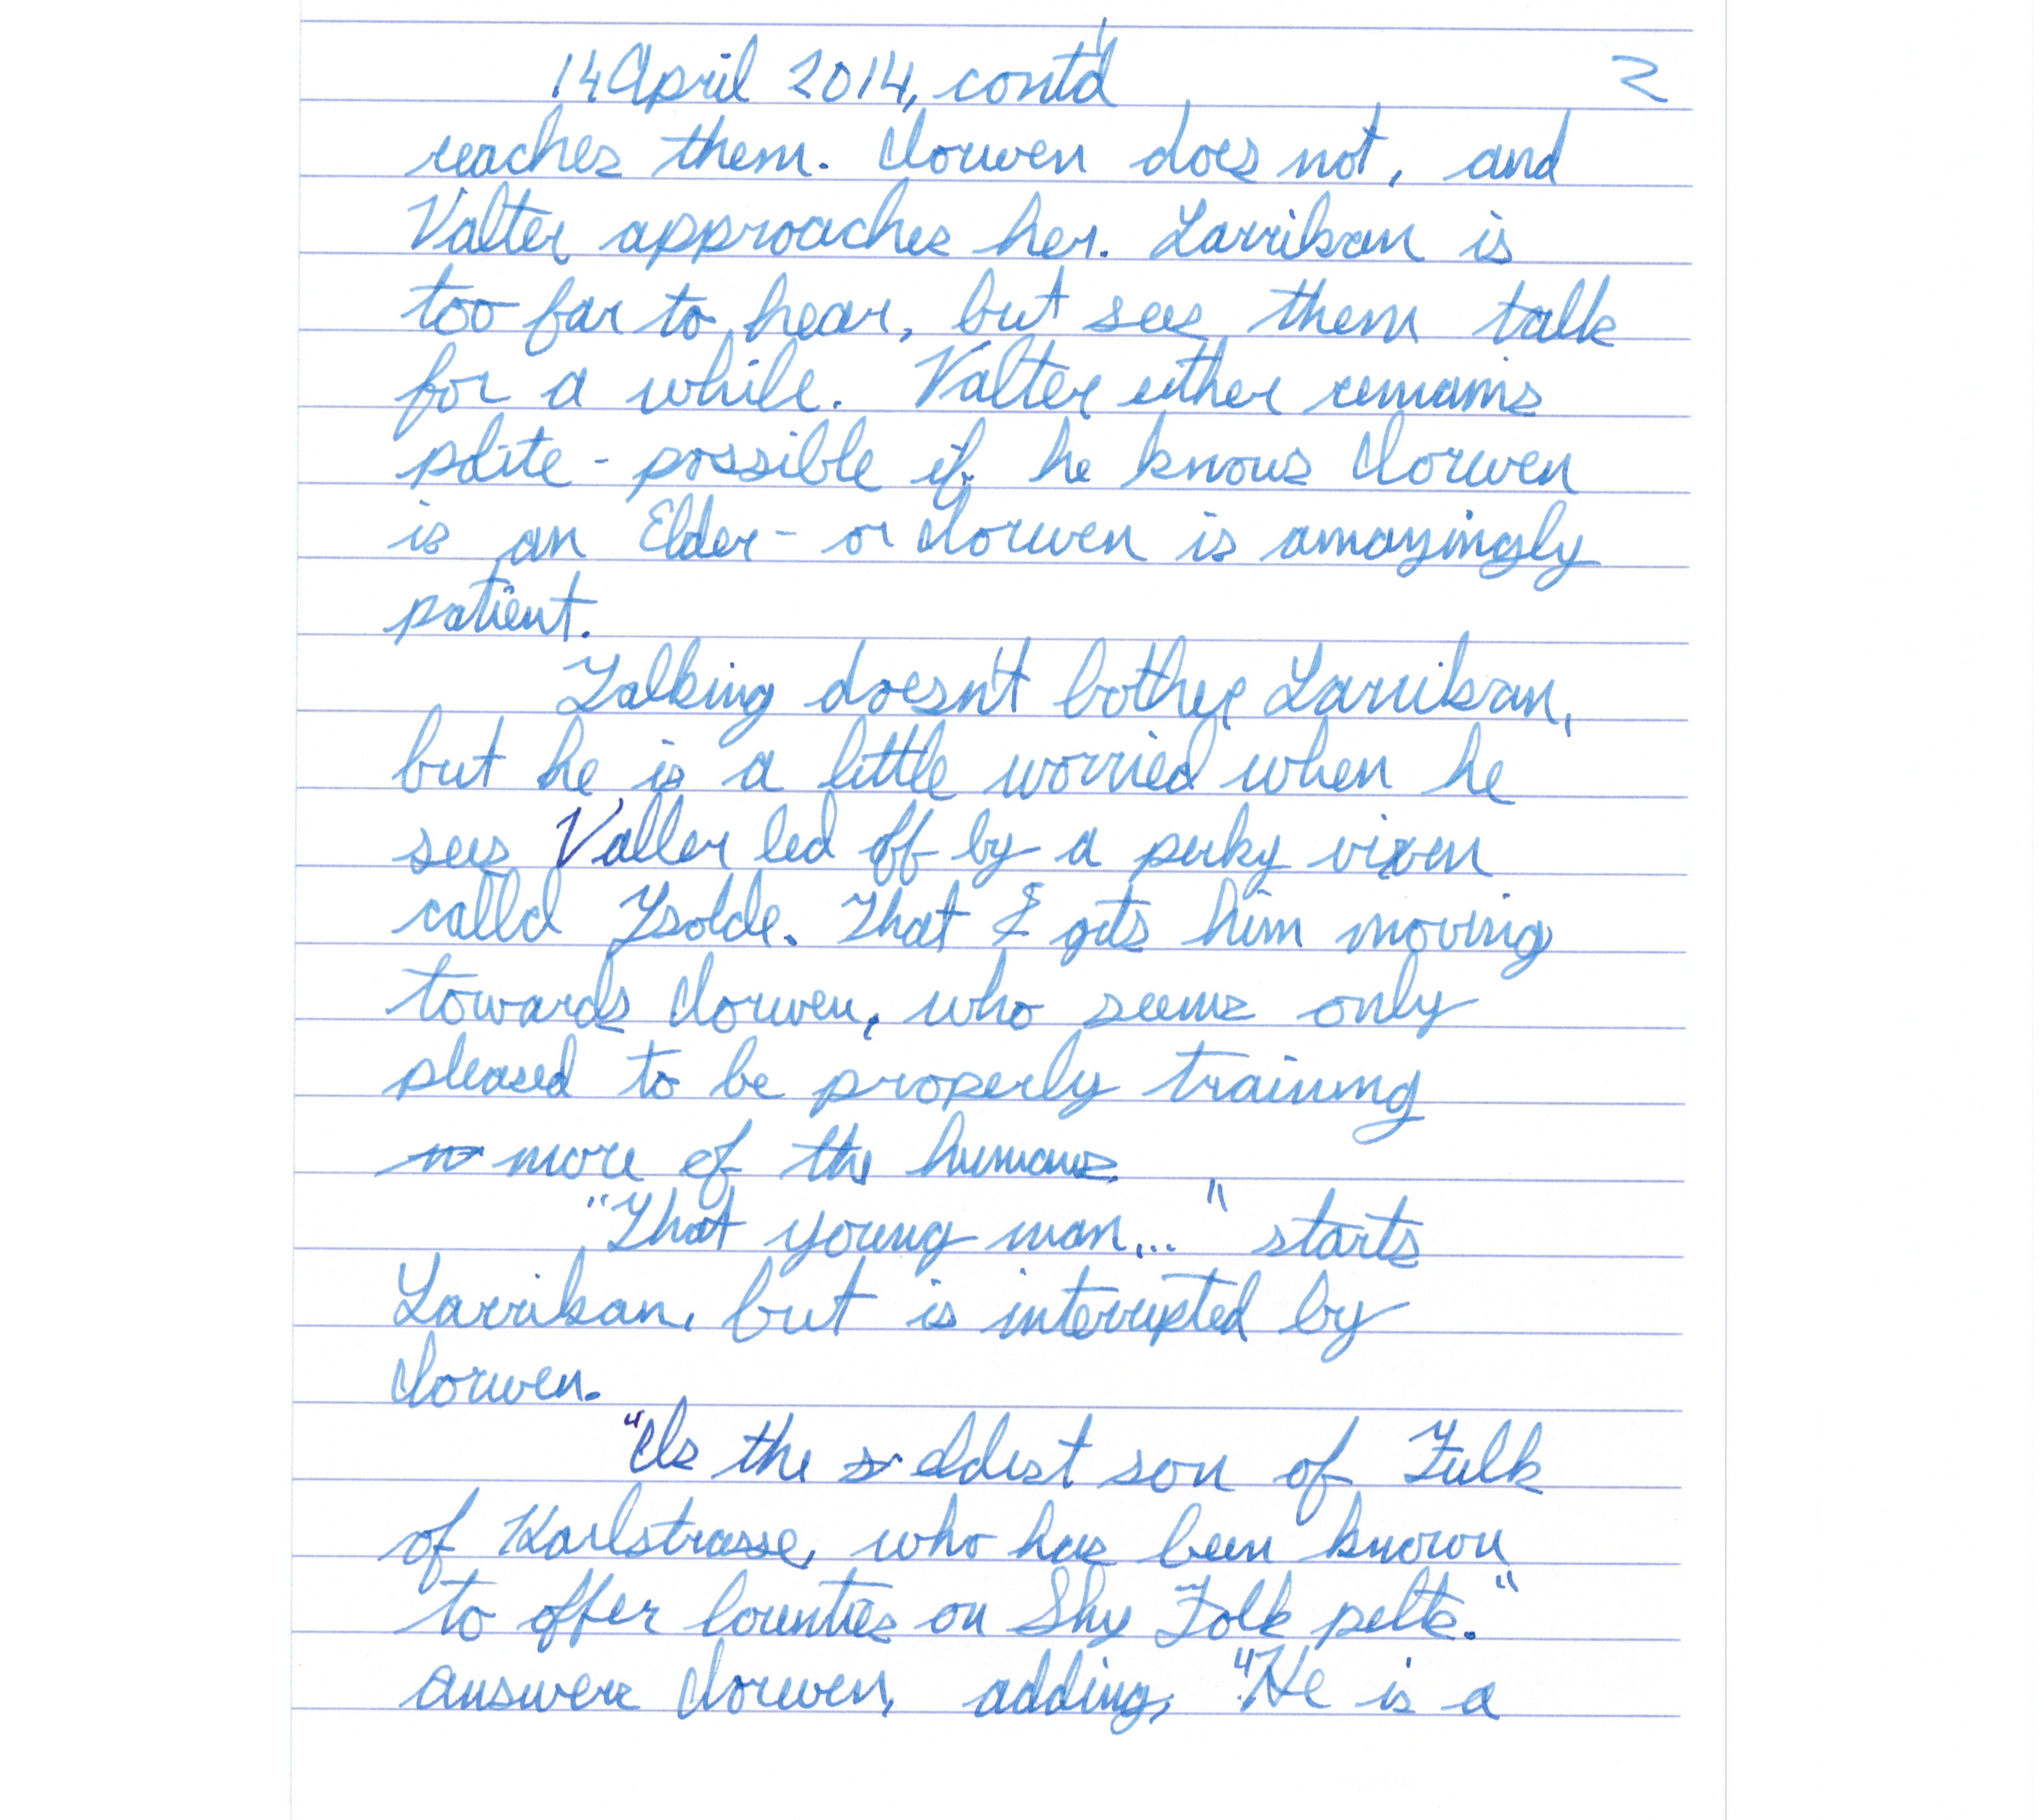 14 April 2014, cont'd 2
reaches them. Clorwen does not, and
Valter approaches her. Larrikan is
too far to hear, but sees them talk
for a while. Valter either remains
polite - possible if he knows Clorwen
is an Elder - or Clorwen is amazingly
patient.
Talking doesn't bother Larrikan,
but he is a little worried when he
sees Valter led off by a perky vixen
called Ysolde. That & gets him moving
towards Clorwen, who seems only
pleased to be properly training
more of the humans.
"That young man..." starts
Larrikan, but is interrupted by
Clorwen.
"Is the eldest son of Fulk
of Karlstrasse, who has been known
to offer bounties on Shy Folk pelts."
answers Clorwen, adding, "He is a